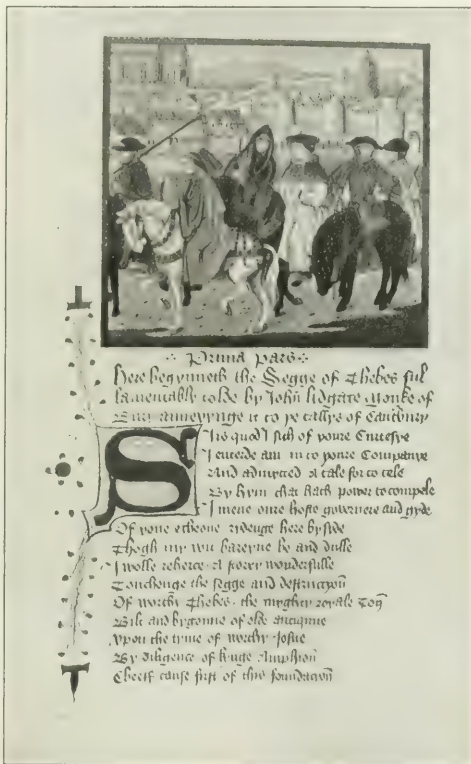 Prima pars
Here begynneth the Segge of Thebes ful
lamentably tolde by John lidgate Monke of
Bury anneynge it to þe tallys of Cauntbury
Sirs quod I sith of youre Curtesye
I entrede am in to youre Companye
And admytted a tale for to tele
By hym that hath power to compele
I mene oure hoste governere and gyde
Of youe echeone rydenge here by syde
Thogh my wit bareyne be and dulle
I wolle reherce a story wonderfulle
Touchenge the segge and destruccyoun
Of worthy Thebes the myghty royale Toun
Bilt and bygonne of olde antiquite
Vpon the tyme of worthy Josue
By diligence of kynge Amphioun
Cheeff cause first of this foundacyoun